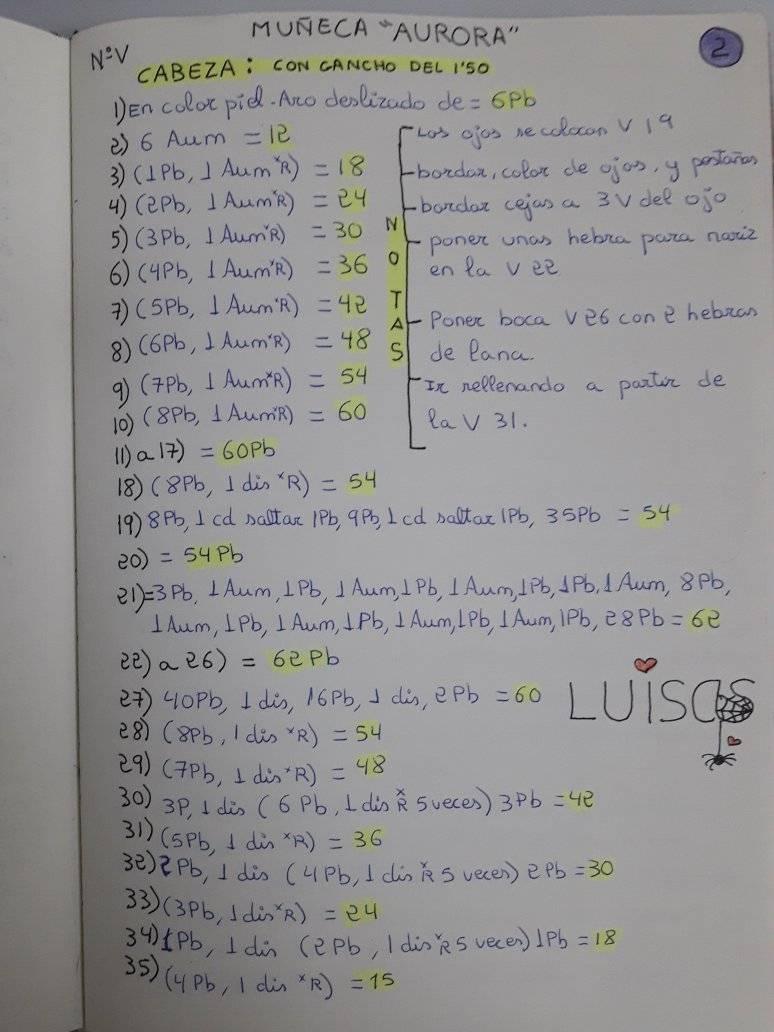 MUÑECA "AURORA"
2
NºV
CABEZA: CON GANCHO DEL 1'50
1) En color piel. Aro deslizado de = 6Pb
2) 6 Aum = 12
3) (1Pb, 1 Aum *R) = 18
4) (2Pb, 1 Aum *R) = 24
5) (3Pb, 1 Aum *R) = 30
6) (4Pb, 1 Aum *R) = 36
7) (5Pb, 1 Aum *R) = 42
8) (6Pb, 1 Aum *R) = 48
9) (7Pb, 1 Aum *R) = 54
10) (8Pb, 1 Aum *R) = 60
NOTAS
- Los ojos se colocan V 19
- bordar, color de ojos, y pestañas
- bordar cejas a 3V del ojo
- poner unas hebra para nariz
en la V 22
- Poner boca V26 con 2 hebras
de lana.
- Ir rellenando a partir de
la V 31.
11) a 17) = 60Pb
18) (8Pb, 1 dis *R) = 54
19) 8Pb, 1 cd saltar 1Pb, 9Pb, 1 cd saltar 1Pb, 35Pb = 54
20) = 54Pb
21) = 3Pb, 1 Aum, 1Pb, 1 Aum, 1Pb, 1 Aum, 1Pb, 1Pb, 1 Aum, 8Pb,
1 Aum, 1Pb, 1 Aum, 1Pb, 1 Aum, 1Pb, 1 Aum, 1Pb, 28Pb = 62
22) a 26) = 62Pb
27) 40Pb, 1 dis, 16Pb, 1 dis, 2Pb = 60
LUISCAS
28) (8Pb, 1 dis *R) = 54
29) (7Pb, 1 dis *R) = 48
30) 3P, 1 dis (6Pb, 1 dis *R 5 veces) 3Pb = 42
31) (5Pb, 1 dis *R) = 36
32) 2Pb, 1 dis (4Pb, 1 dis *R 5 veces) 2Pb = 30
33) (3Pb, 1 dis *R) = 24
34) 1Pb, 1 dis (2Pb, 1 dis *R 5 veces) 1Pb = 18
35) (4Pb, 1 dis *R) = 15